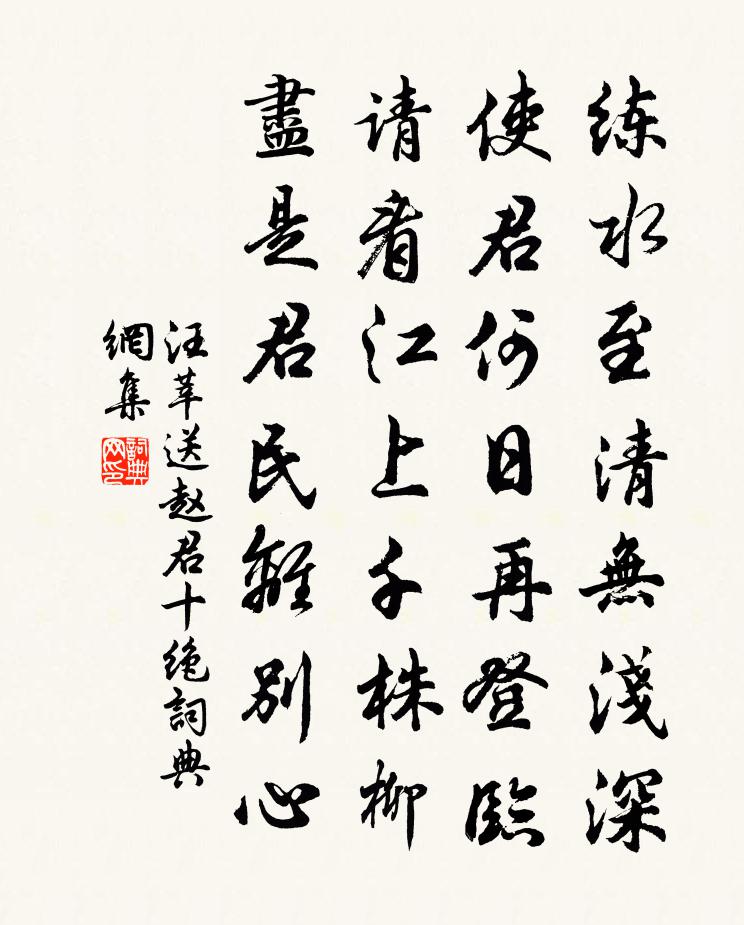 练水至清無淺深
使君何日再登臨
请看江上千株柳
盡是君民離別心
汪莘送赵君十绝詞典
網集
詞典
网印